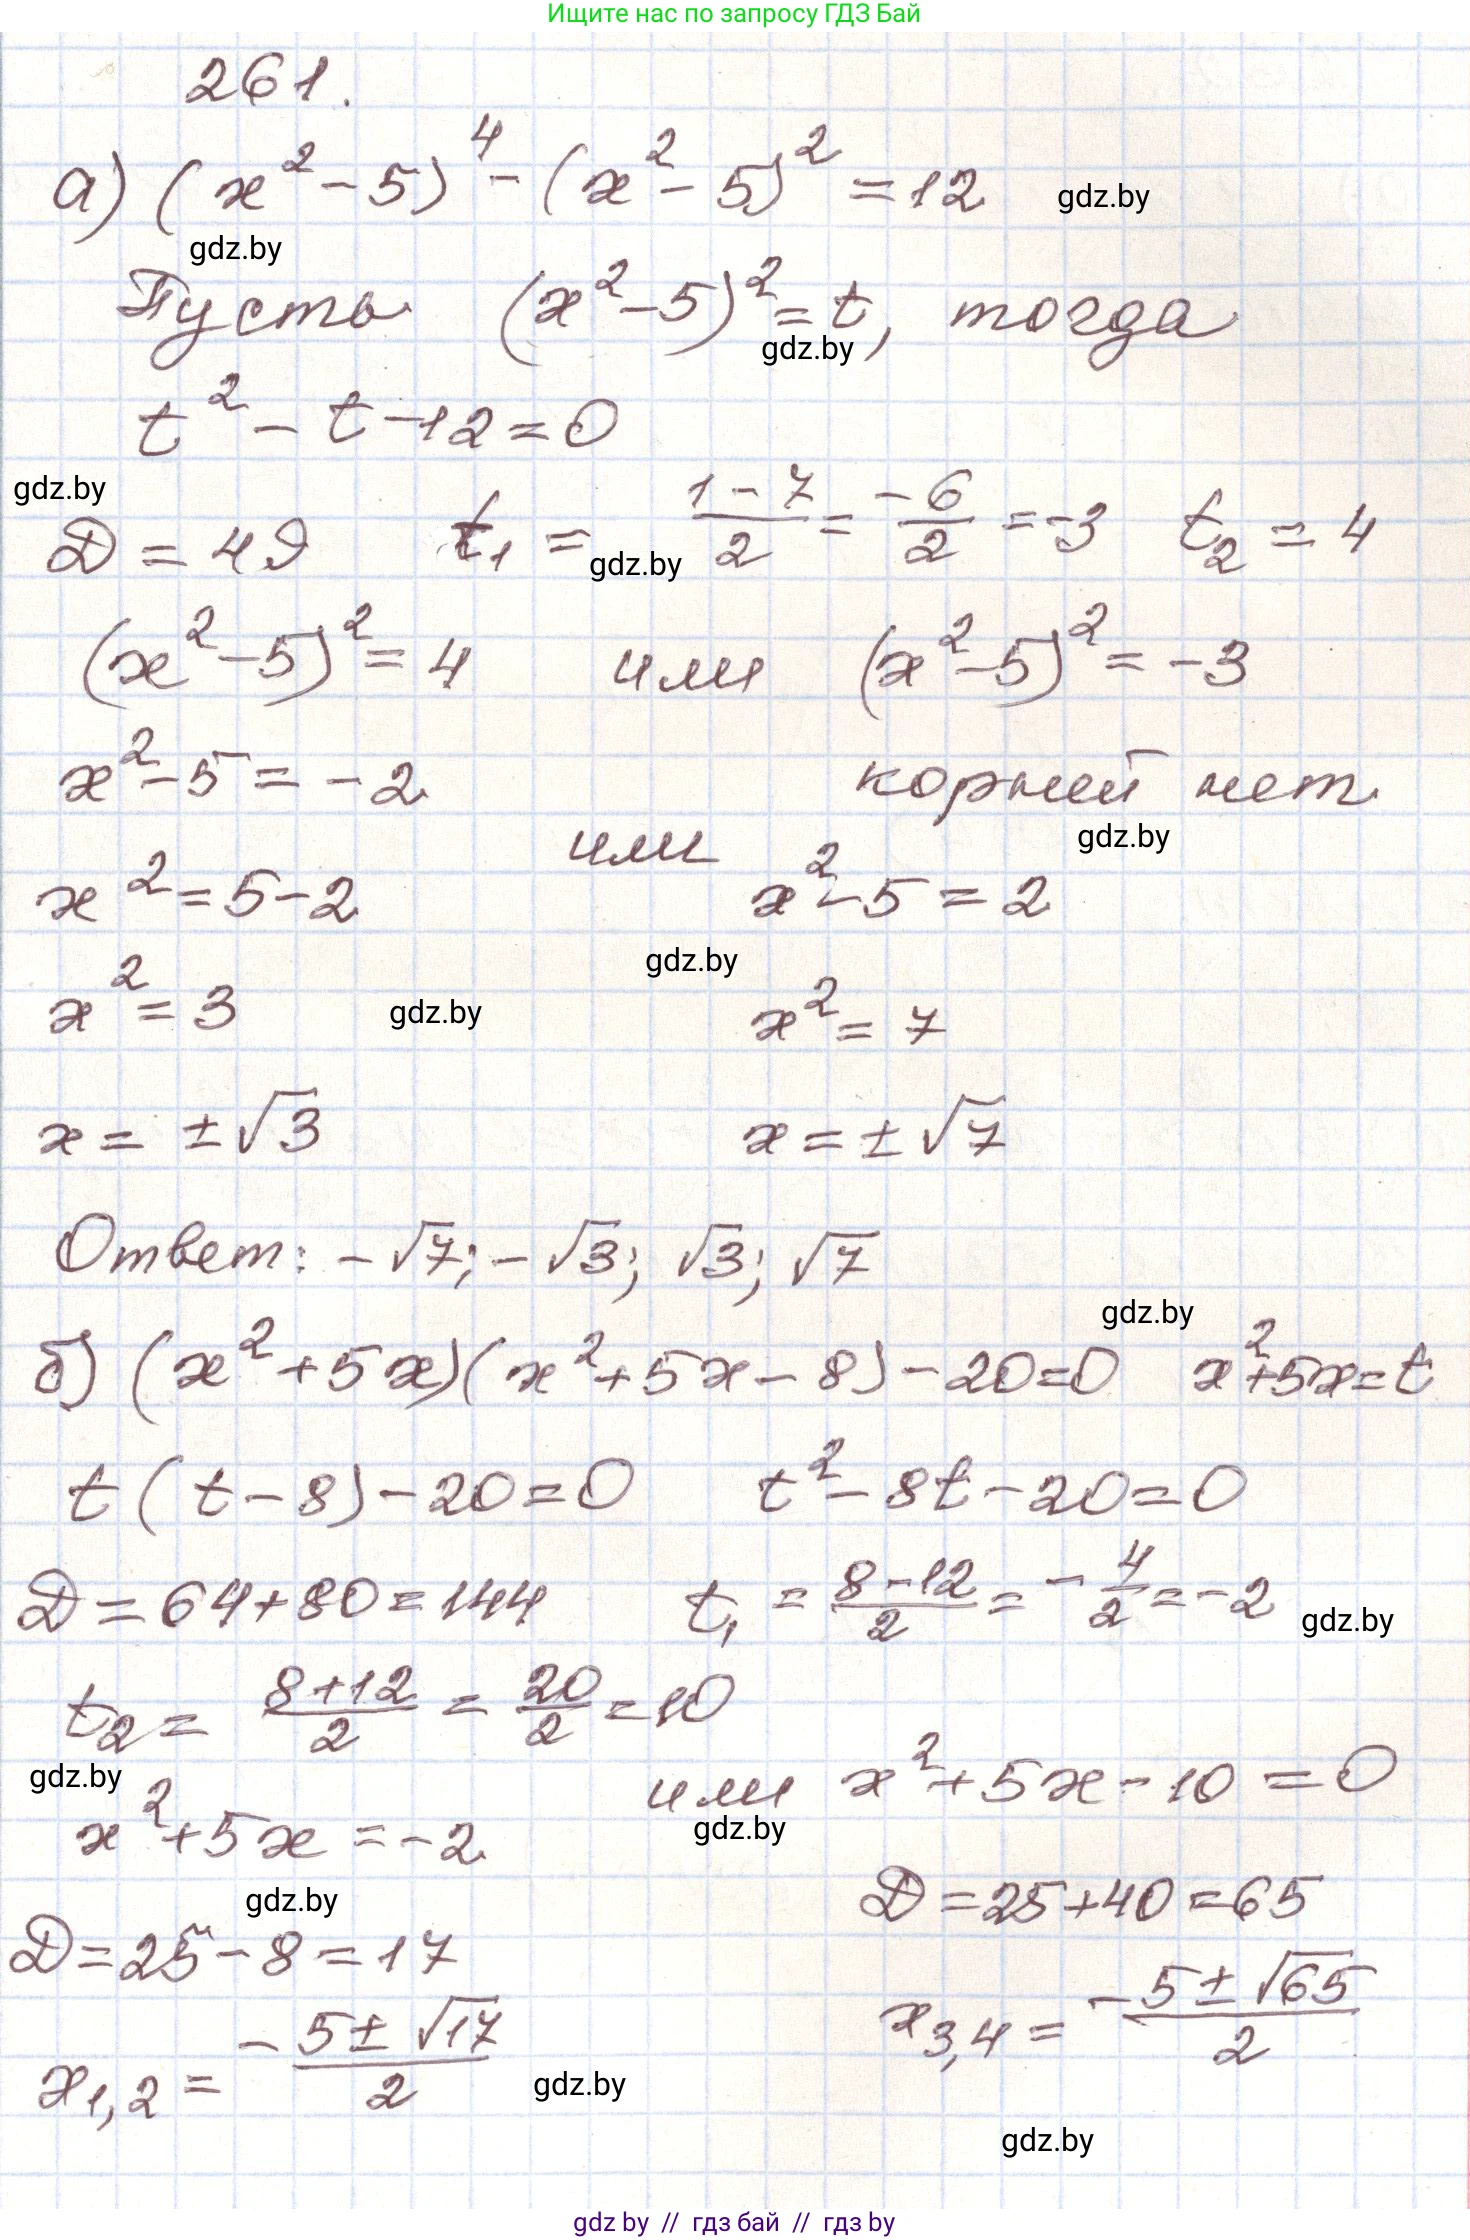 Ищите нас по запросу ГДЗ Бай
261.
а) (x² - 5)⁴ - (x² - 5)² = 12 gdz.by
gdz.by
Пусть (x² - 5)² = t, тогда
gdz.by
t² - t - 12 = 0
gdz.by
D = 49 t₁ = (1 - 7)/2 = -6/2 = -3 t₂ = 4
gdz.by
(x² - 5)² = 4 или (x² - 5)² = -3
x² - 5 = -2 корней нет
gdz.by
или
x² = 5 - 2 x² - 5 = 2
gdz.by
x² = 3 gdz.by x² = 7
x = ±√3 x = ±√7
Ответ: -√7; -√3; √3; √7
gdz.by
б) (x² + 5x)(x² + 5x - 8) - 20 = 0 x² + 5x = t
t(t - 8) - 20 = 0 t² - 8t - 20 = 0
D = 64 + 80 = 144 t₁ = (8 - 12)/2 = -4/2 = -2 gdz.by
t₂ = (8 + 12)/2 = 20/2 = 10
gdz.by
x² + 5x = -2 или x² + 5x - 10 = 0
gdz.by
gdz.by
D = 25 - 8 = 17 D = 25 + 40 = 65
x₁,₂ = -(5 ± √17)/2 x₃,₄ = -(5 ± √65)/2
gdz.by
gdz.by
gdz by // гдз бай // гдз by